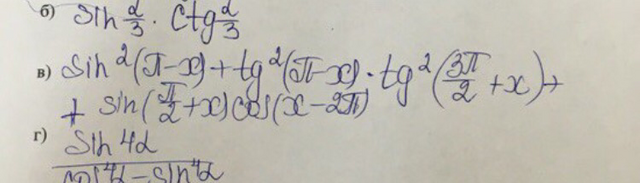 б) sin α/3 · ctg α/3
в) sin²(π-x)+tg²(π-x)·tg²(3π/2+x)+
+ sin(π/2+x)cos(x-2π)
г) sin4α
cos⁴α-sin⁴α